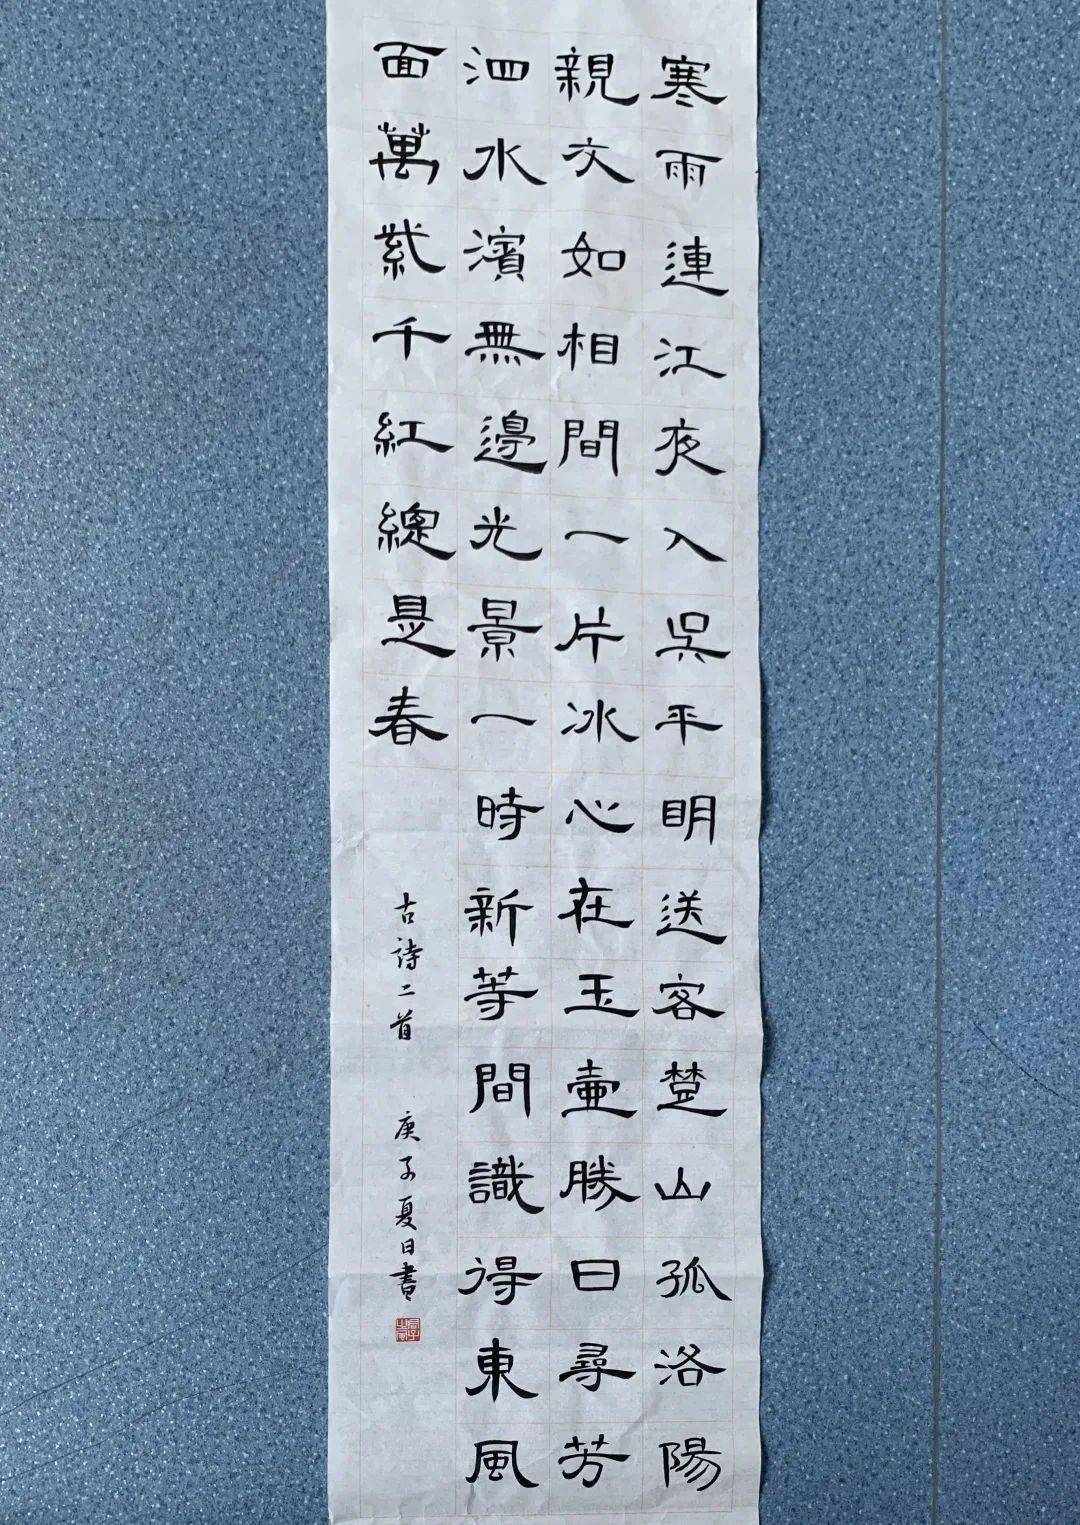 寒雨連江夜入吳平明送客楚山孤洛陽
親友如相間一片冰心在玉壺勝日尋芳
泗水濱無邊光景一時新等間識得東風
面萬紫千紅總是春
古詩二首 庚子夏日書